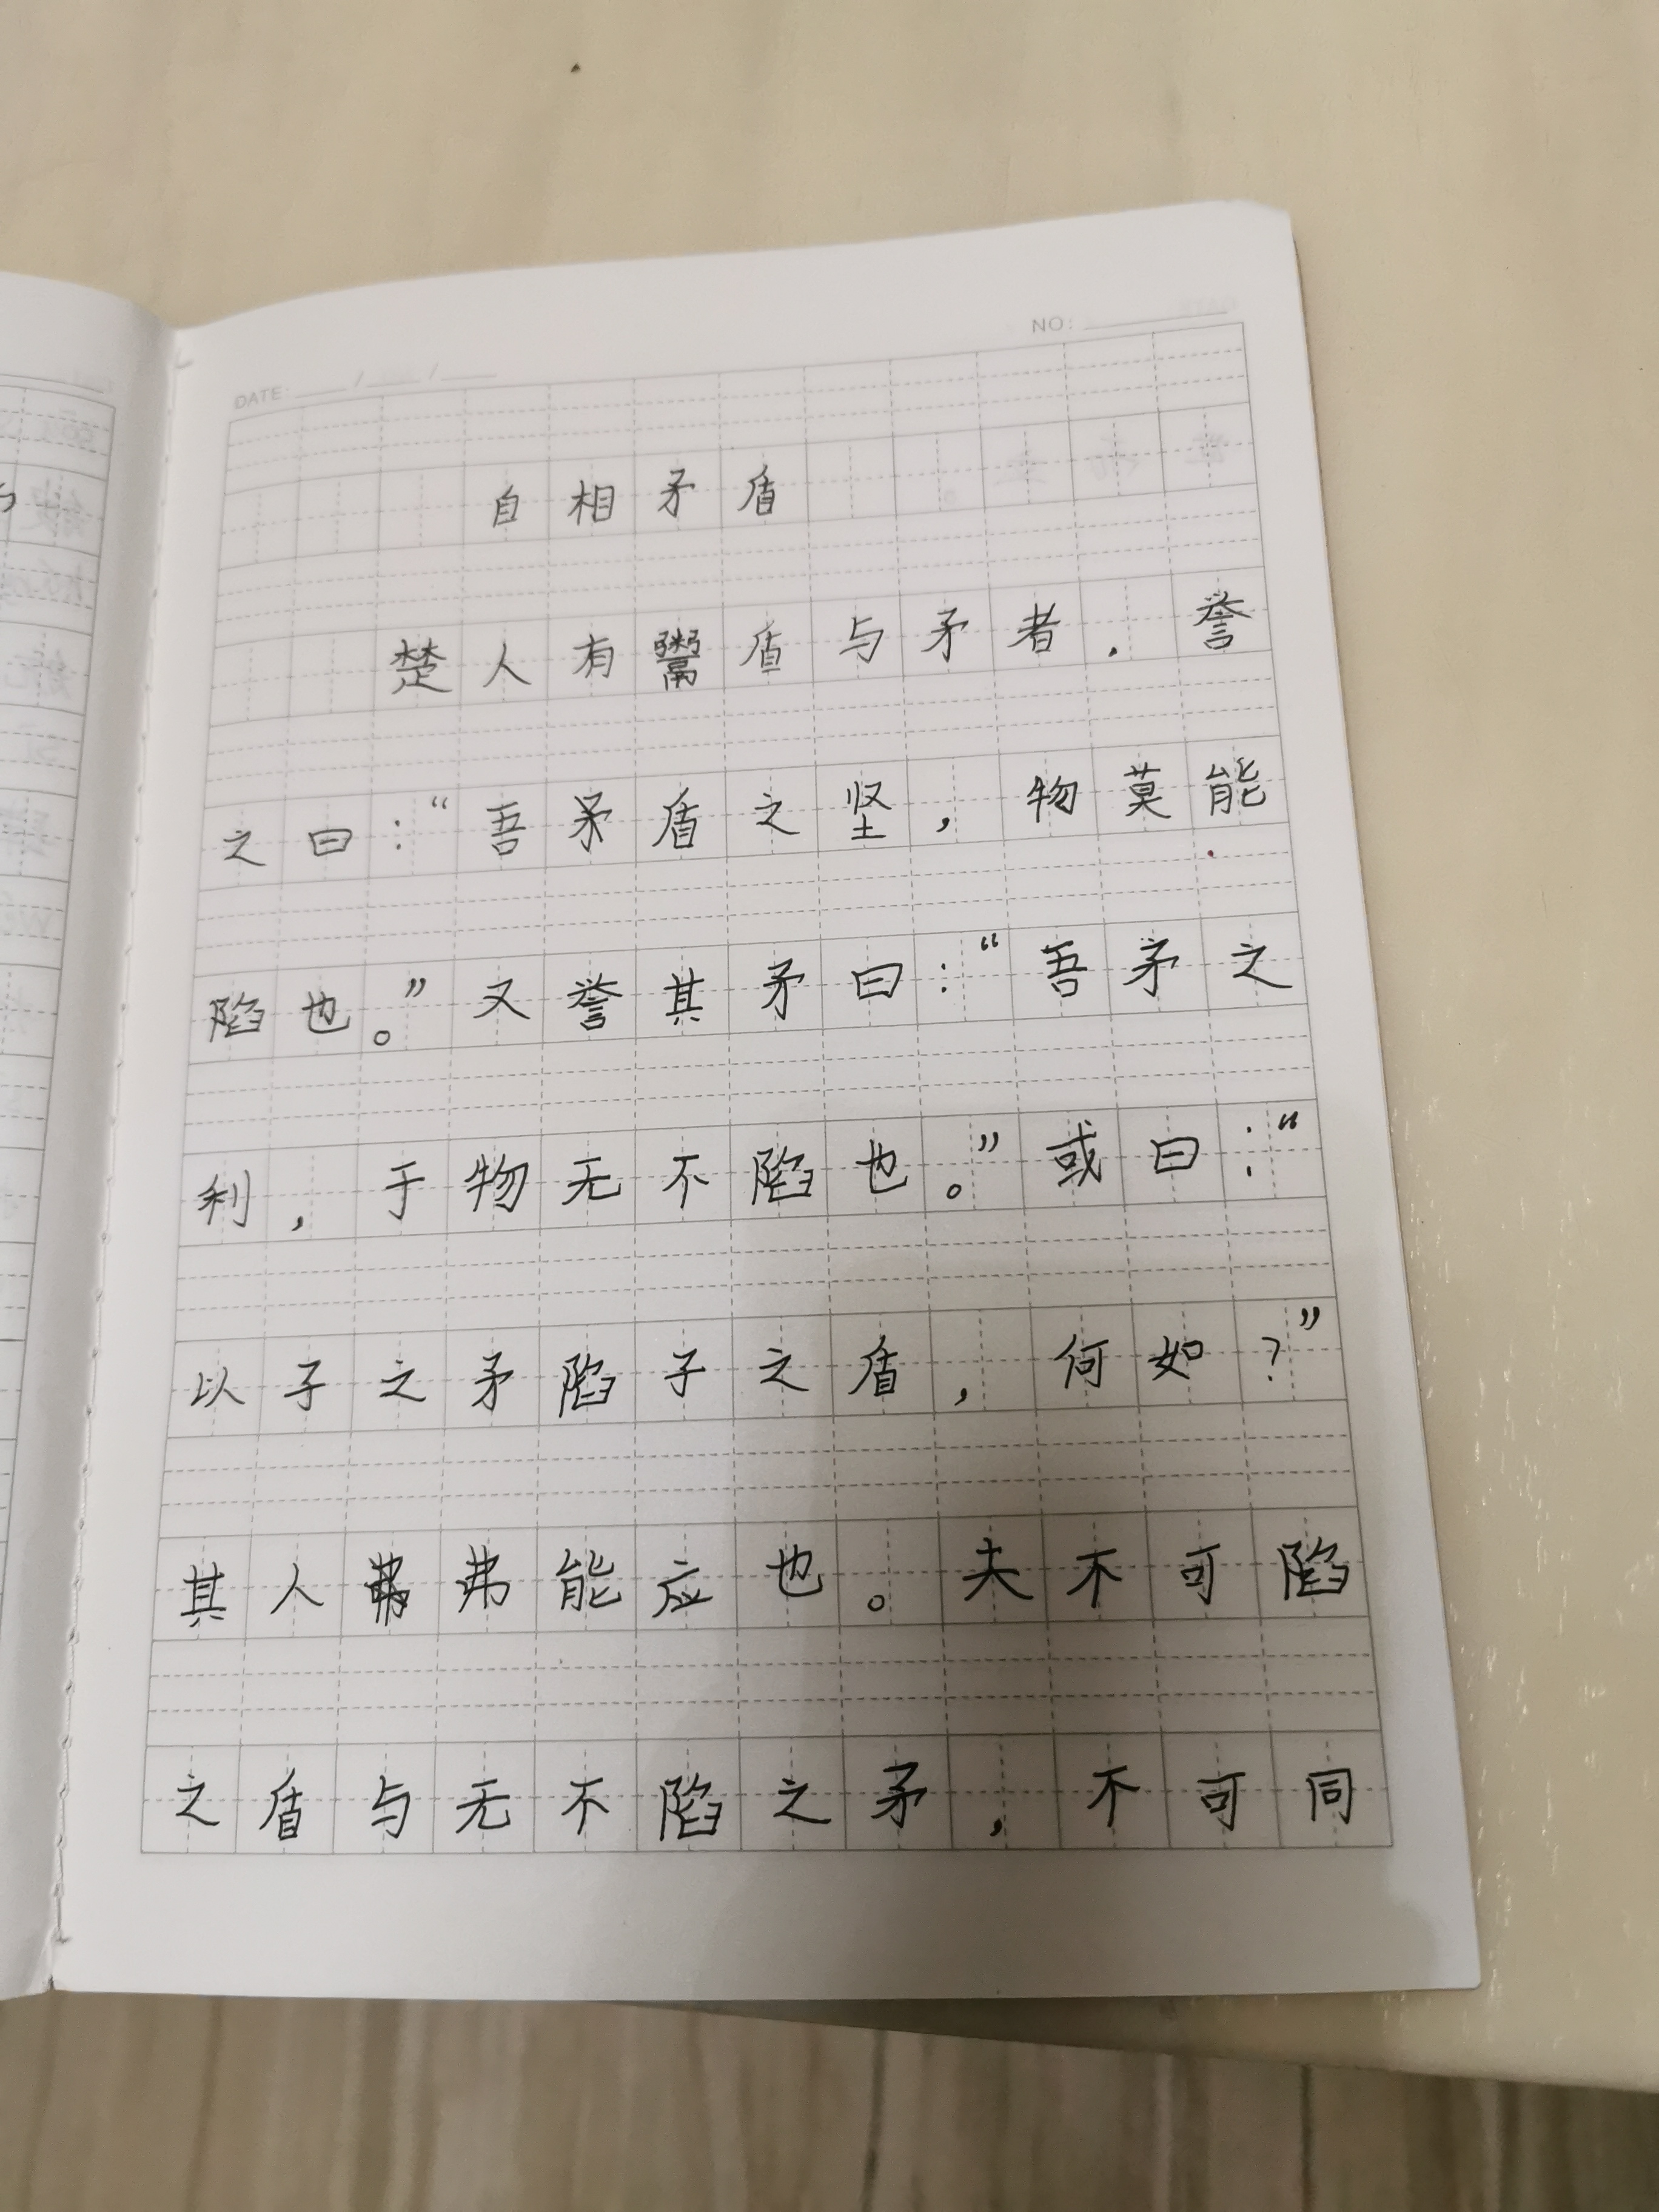 DATE: / /
NO:
自相矛盾
楚人有鬻盾与矛者,誉
之曰:“吾矛盾之坚,物莫能
陷也。”又誉其矛曰:“吾矛之
利,于物无不陷也。”或曰:“
以子之矛陷子之盾,何如?”
其人弗能应也。夫不可陷
之盾与无不陷之矛,不可同